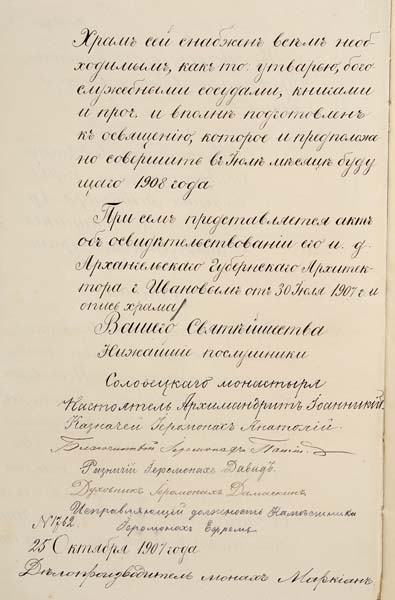 Храмъ сей снабженъ всѣмъ необ-
ходимымъ, какъ то: утварею, бого-
служебными сосудами, книгами
и проч. и вполнѣ подготовленъ
къ освященію, которое и предположе-
но совершить въ Іюлѣ мѣсяцѣ буду-
щаго 1908 года.
При семъ представляется актъ
объ освидѣтельствованіи его и. д.
Архангельскаго Губернскаго Архитек-
тора г. Ивановымъ отъ 30 Іюля 1907 г. и
опись храма.
Вашего Святѣйшества
Нижайшіе послушники
Соловецкаго монастыря
Настоятель Архимандритъ Іоанникій.
Казначей Іеромонахъ Анатолій.
Благочинный Іеромонахъ
Ризничій Іеромонахъ Давидъ.
Духовникъ Іеромонахъ Дамаскинъ.
Исправляющій должность Намѣстника
Іеромонахъ Ефремъ
№ 1762
25 Октября 1907 года
Дѣлопроизводитель монахъ Маркіанъ.